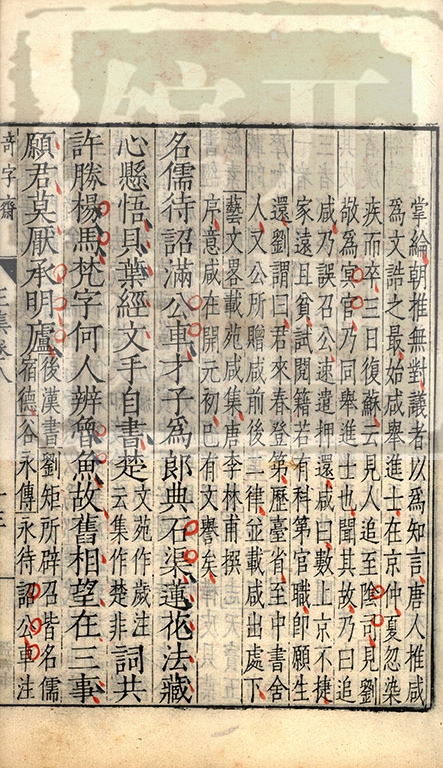 掌綸朝推無對議者以爲知言唐人推咸
爲文誥之最始咸舉進士在京仲夏忽染
疾而卒三日復蘇云見人追至陰司見劉
敬爲冥官乃同舉進士也聞其故乃曰追
咸乃誤召公速遣押還咸曰數上京不捷
家遠且貧試閱籍若有科第官職即願生
還劉謂曰君來春登第歷臺省至中書舍
人又公所贈咸前後二律並載咸出處下
藝文畧載苑咸集唐李林甫撰
序意咸在開元初已有文譽矣
名儒待詔滿公車才子爲郎典石渠蓮花法藏
心懸悟貝葉經文手自書楚文苑作歲注云集作楚非詞共
許勝楊馬梵字何人辨魯魚故舊相望在三事
願君莫厭承明廬後漢書劉矩所辟召皆名儒宿德谷永傳永待詔公車注
奇字齋